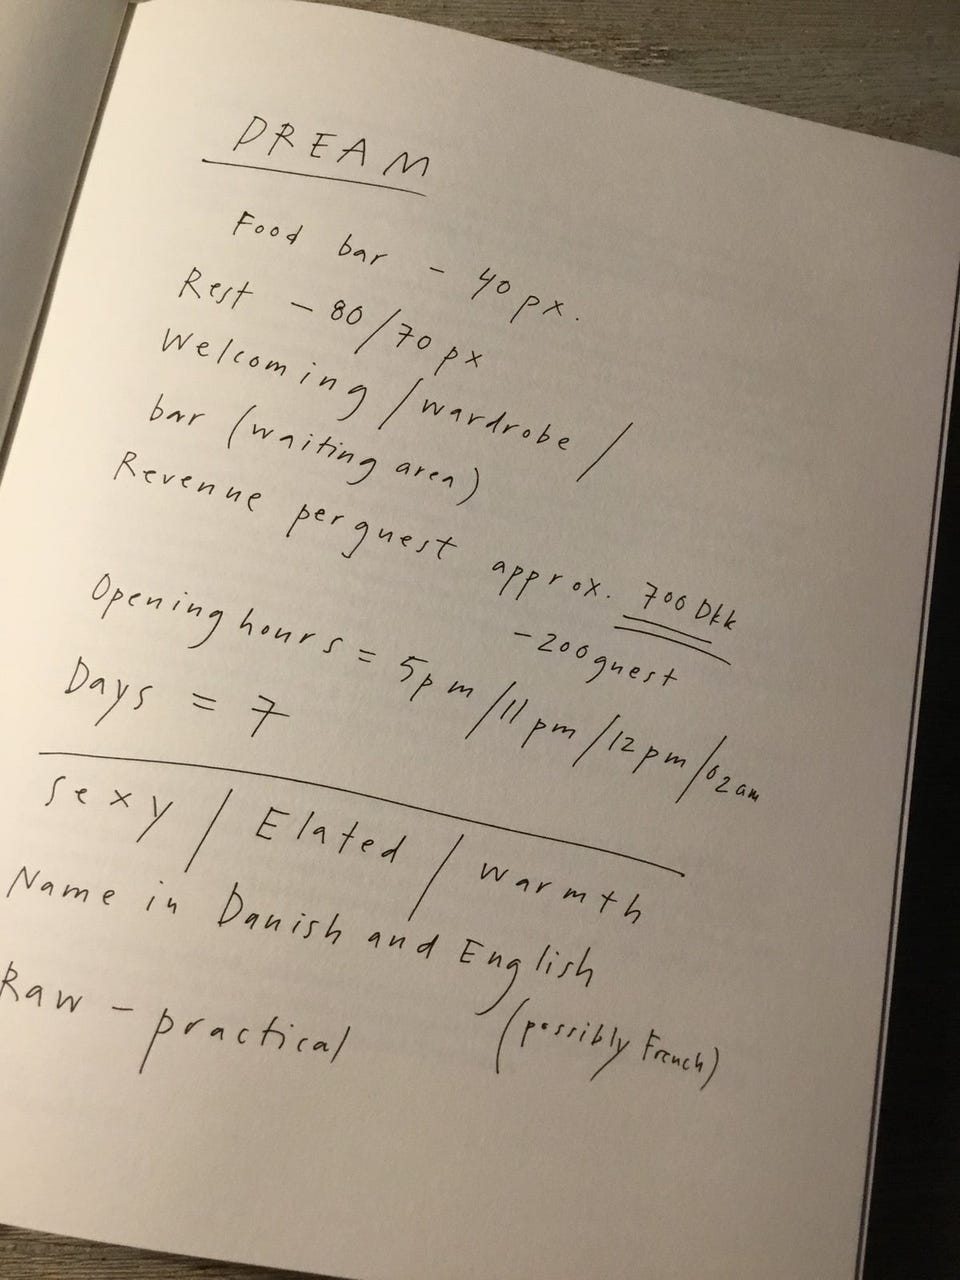 DREAM
Food bar - 40 px.
Rest - 80/70 px
Welcoming / wardrobe /
bar (waiting area)
Revenue per guest approx. 700 Dkk
- 200 guest
Opening hours = 5pm / 11pm / 12pm / 02am
Days = 7
Sexy / Elated / Warmth
Name in Danish and English
(possibly French)
Raw - practical